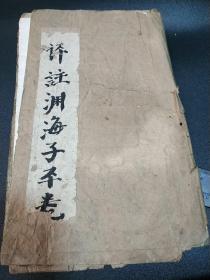 譯註渊海子平卷